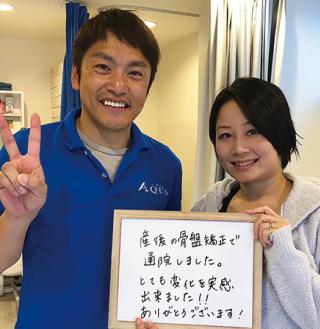 AQUA
産後の骨盤矯正で
通院しました。
とても変化を実感
出来ました!!
ありがとうございます!